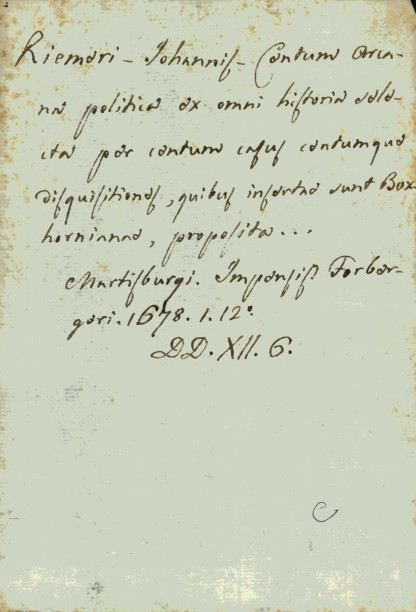 Riemeri - Johannis - Centum Arca-
na politica ex omni historia sele-
cta per centum casus centumque
disquisitiones, quibus insertae sunt Box-
hornianae, proposita...
Martisburgi. Impensis Forber-
geri. 1678. 1. 12°.
DD. XII. 6.